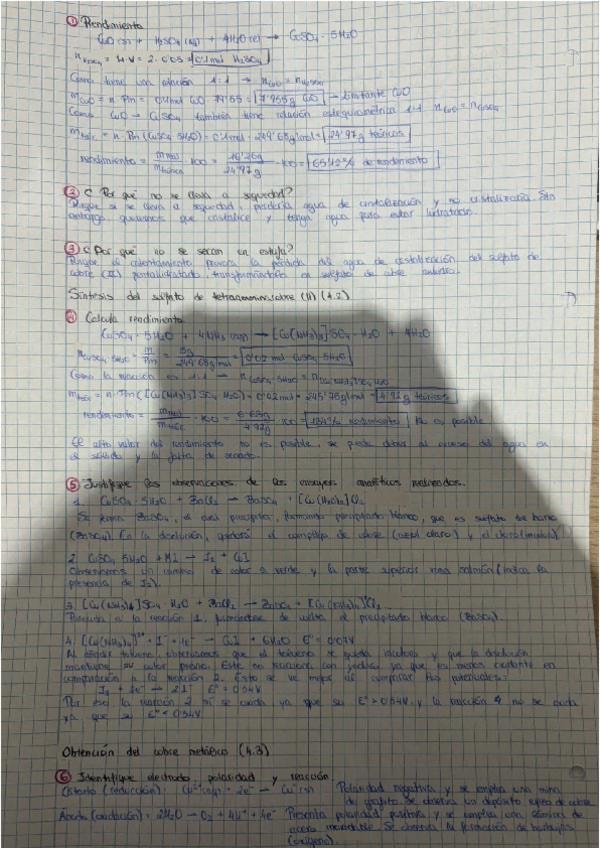 ① Rendimiento
CuO (s) + H2SO4 (aq) + 4H2O (l) → CuSO4 · 5H2O
n H2SO4 = M·V = 2·0'05 = 0'1 mol H2SO4
Como tiene una relación 1:1 → nCuO = nH2SO4
mCuO = n·Pm = 0'1 mol CuO · 79'55 = 7'955g CuO → limitante CuO
Como CuO → CuSO4 también tiene relación estequiométrica 1:1 nCuO = nCuSO4
mteór = n·Pm (CuSO4·5H2O) = 0'1 mol · 249'68 g/mol = 24'97g teóricos
rendimiento = mreal/mteórica · 100 = /24'97g · 100 = 65'12% de rendimiento
② ¿Por qué no se lleva a sequedad?
Porque si se lleva a sequedad, perdería agua de cristalización y no cristalizaría. Sin
embargo, queremos que cristalice y tenga agua para estar hidratado.
③ ¿Por qué no se secan en estufa?
Porque el calentamiento provoca la pérdida del agua de cristalización del sulfato de
cobre (II) pentahidratado, transformándolo en sulfato de cobre anhidro.
Síntesis del sulfato de tetraamminocobre (II) (4.2)
④ Calcula rendimiento
CuSO4 · 5H2O + 4NH3 (aq) → [Cu(NH3)4]SO4 · H2O + 4H2O
nCuSO4·5H2O = m/Pm = 5g/249'68g/mol = 0'02 mol CuSO4·5H2O
Como la reacción es 1:1 → nCuSO4·5H2O = n[Cu(NH3)4]SO4·H2O
mteór = n·Pm ([Cu(NH3)4]SO4·H2O) = 0'02mol · 245'75g/mol = 4'92g teóricos
rendimiento = mreal/mteór · 100 = /4'92g · 100 = 134% rendimiento No es posible
El alto valor del rendimiento no es posible, se puede deber al exceso del agua en
el sólido y la falta de secado.
⑤ Justifique las observaciones de los ensayos analíticos realizados.
1. CuSO4 · 5H2O + BaCl2 → BaSO4 + [Cu(H2O)]Cl2
Se forma BaSO4, el cual precipita, formando precipitado blanco, que es sulfato de bario
(BaSO4). En la disolución, quedará el complejo de cobre (azul claro) y el cloro (incoloro).
2. CuSO4·5H2O + KI → I2 + CuI
Observamos un cambio de color a verde y la parte superior rosa salmón (indica la
presencia de I2).
3. [Cu(NH3)4]SO4 · H2O + BaCl2 → BaSO4 + [Cu(NH3)4]Cl2
Parecida a la reacción 1, formándose de vuelta el precipitado blanco (BaSO4).
4. [Cu(NH3)4]2+ + I- + 1e- → CuI + 6H2O E° =
Al añadir tolueno, observamos que el tolueno se queda incoloro y que la disolución
mantiene su color previo. Este no reacciona con yoduro ya que es menos oxidante en
comparación a la reacción 2. Esto se ve mejor al comparar los potenciales:
I2 + 2e- → 2I- E° = 0'54V
Por eso la reacción 2 sí se oxida ya que su E° > 0'54V y la reacción 4 no se oxida
ya que su E° < 0'54V.
Obtención del cobre metálico (4.3)
⑥ Identifique electrodo, polaridad y reacción
Cátodo (reducción): Cu2+ (aq) + 2e- → Cu (s) Polaridad negativa y se emplea una mina
de grafito. Se observa un depósito rojizo de cobre.
Ánodo (oxidación): 2H2O → O2 + 4H+ + 4e- Presenta polaridad positiva y se emplea una lámina de
acero inoxidable. Se observa la formación de burbujas
(oxígeno).